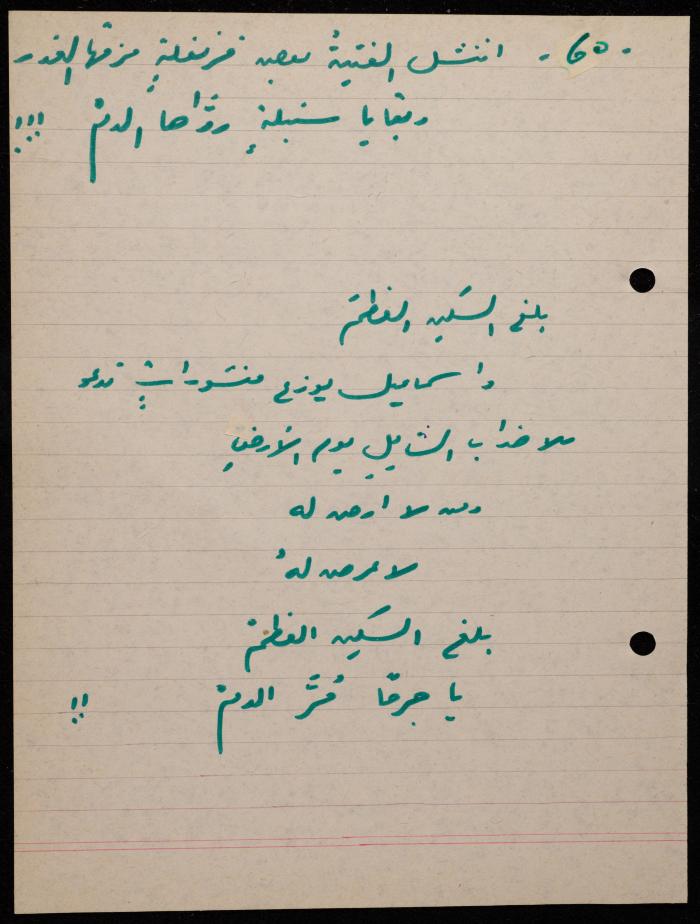 - 60 - انتشل الفتيةُ بعض قرنفلةٍ مزقها الغدر
وبقايا سنبلةٍ روّاها الدمّ !!!
بلغ السكين العظمَ
واسماعيل يوزع منشوراتٍ تدعو
للاضراب الشاملِ يوم الأرضِ
ومن لا ارض له
لا عرض لهُ
بلغ السكين العظمَ
يا جرحًا فتَّر الدمّ !!